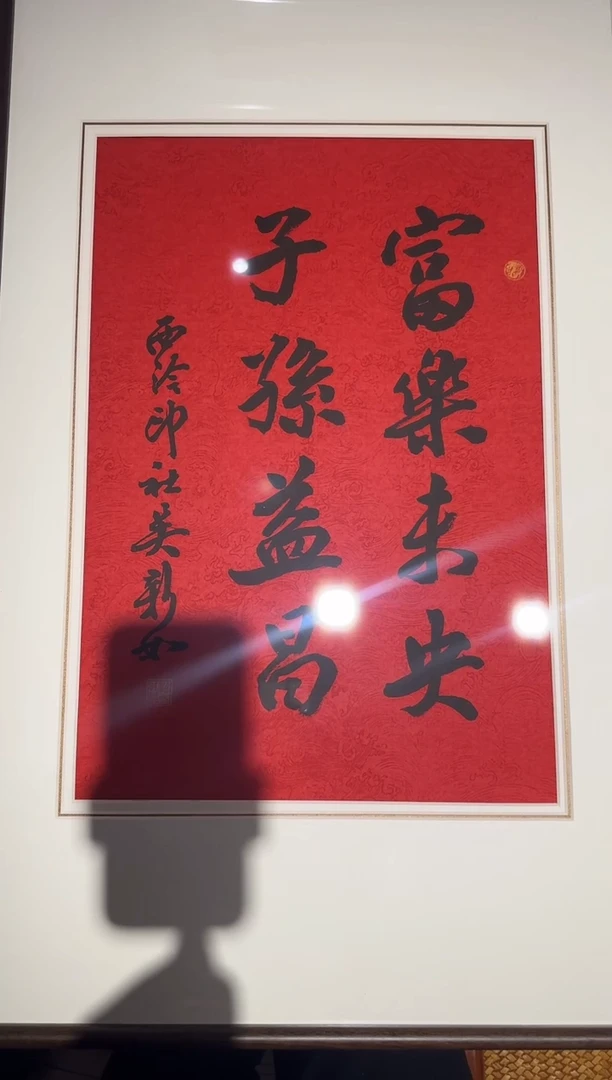 富樂未央
子孫益昌
西泠印社吳新如